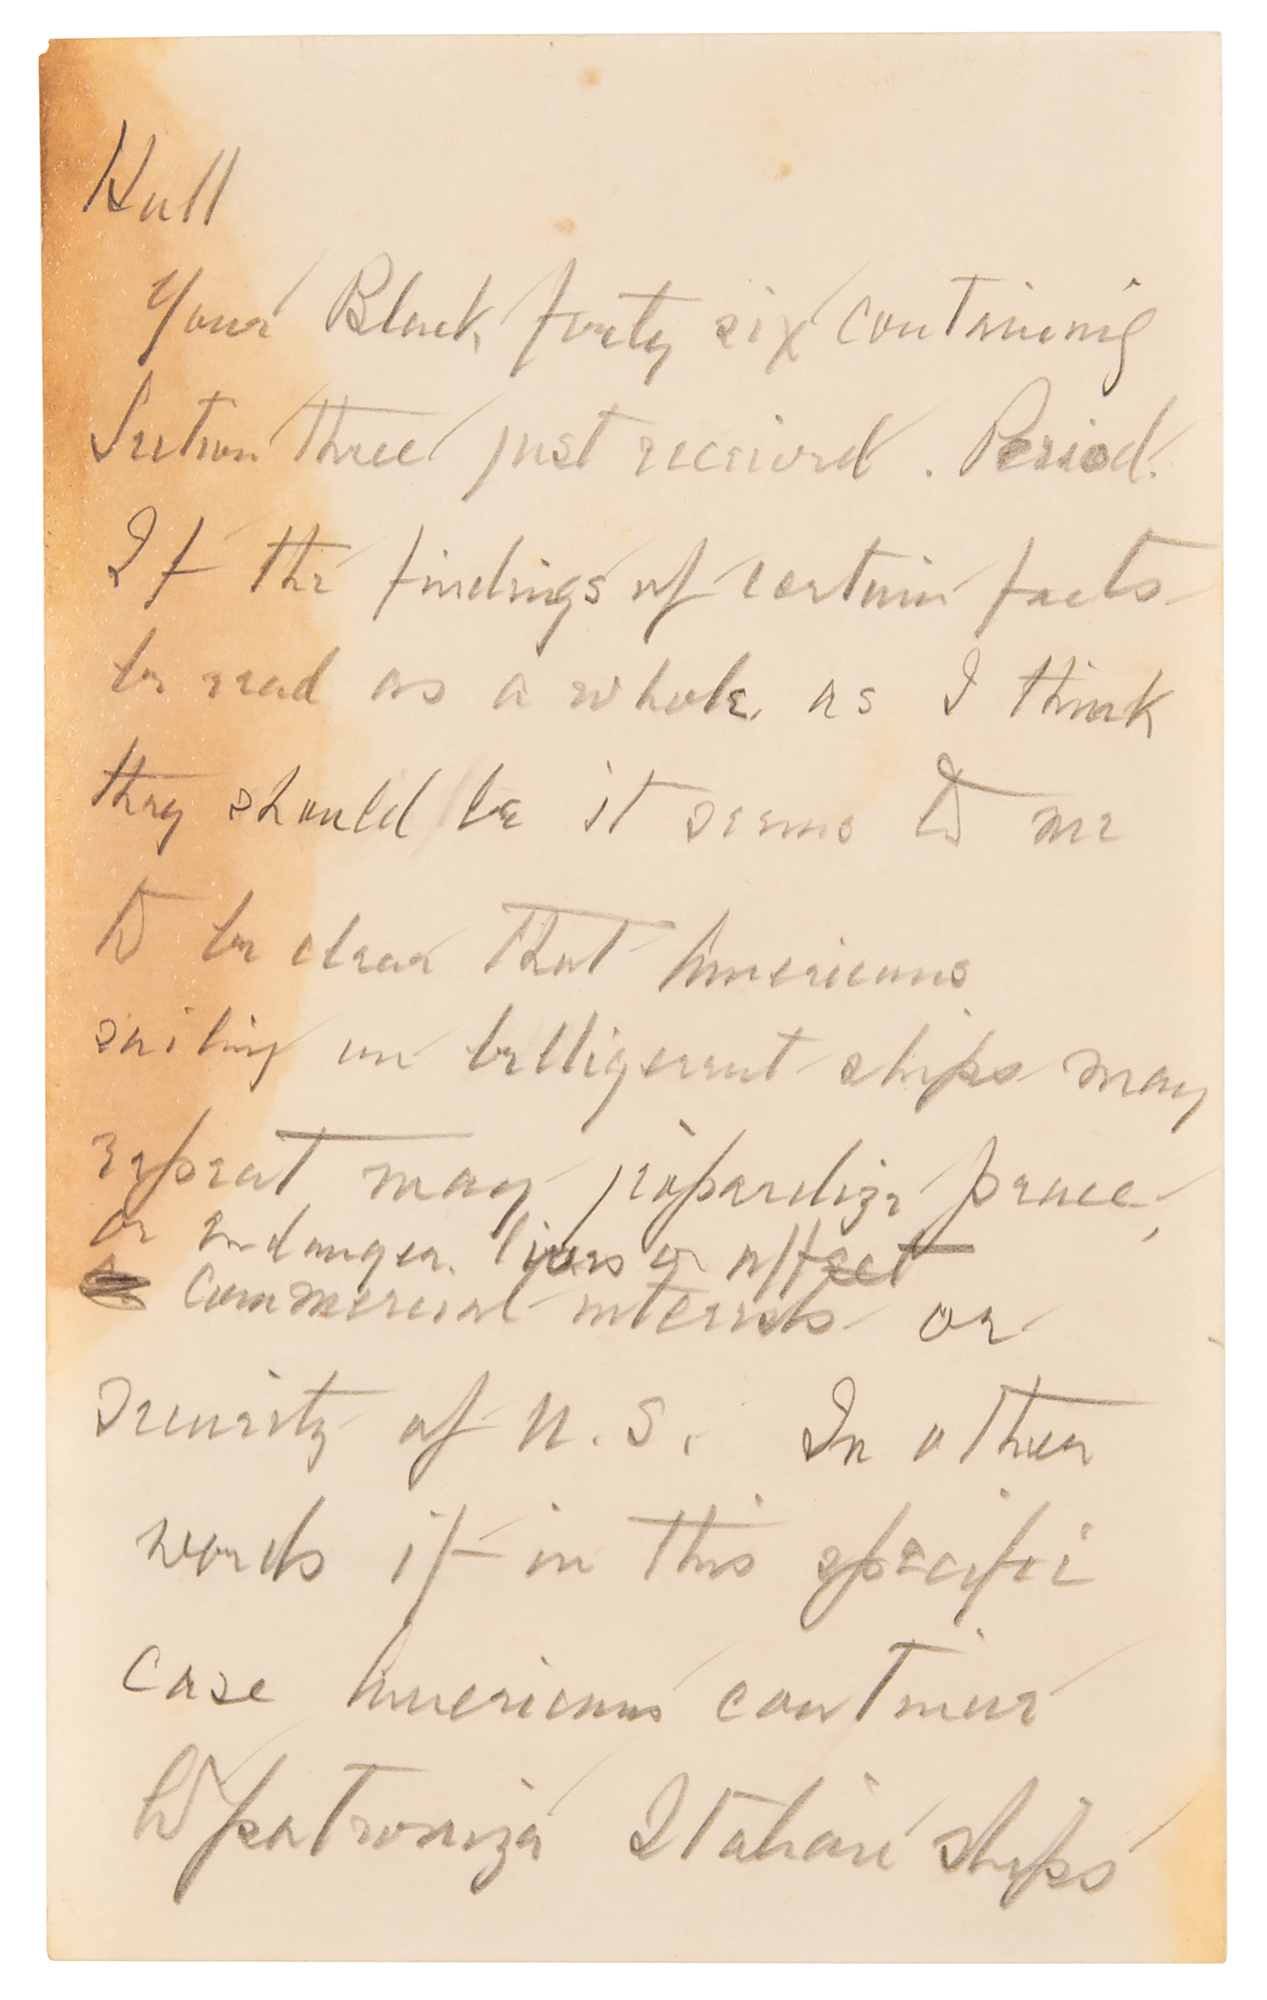 Hull
Your Black forty six containing
Section three just received. Period.
If the findings of certain facts
be read as a whole, as I think
they should be it seems to me
to be clear that Americans
sailing on belligerent ships may
repeat may jeopardize peace,
or endanger lives or affect
commercial interests or
security of U.S. In other
words if in this specific
case Americans continue
to patronize Italian ships